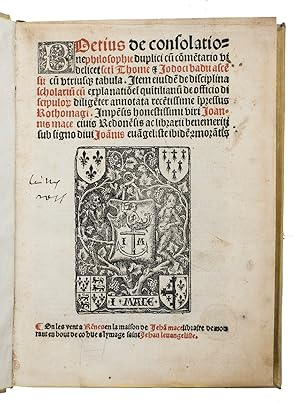 Boetius de consolatio-
ne philosophie duplici cū cōmētario vi
delicet scti Thome & Jodoci badii ascē
sii cū vtriusq; tabula. Item eiusdē de disciplina
scholariū cū explanatiōe l quitiliani de officio di
scipulor diligēter annotata recētissime īpressus
Rothomagi. Impēsis honestissimi viri Joan-
nis mace ciuis Redonēsis ac librarii benemeriti
sub signo diui Joānis euāgeliste ibidē morātis
I A
I MACE
On les vent a Rēnes en la maison de Jehā mace libraire demou
rant en bout de cohue a lymage saint Jehan leuangeliste.